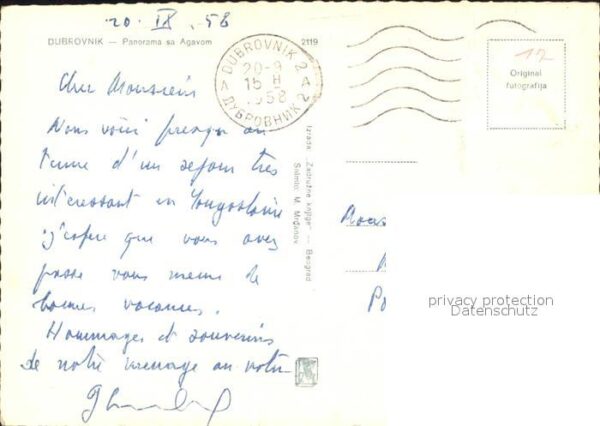 20. IX. 58
DUBROVNIK — Panorama sa Agavom
2119
DUBROVNIK 2
20-9
15 H
1958
ДУБРОВНИК 2
12
Original
fotografija
Cher Monsieur
Nous voici presqu au
terme d'un séjour très
intéressant en Yougoslavie
j'espère que vous avez
passé vous meme de
bonnes vacances.
Hommages et souvenirs
de notre menage au votre
Izdala „Zadružne knjige" — Beograd
Snimio: M. Mrđanov
privacy protection
Datenschutz